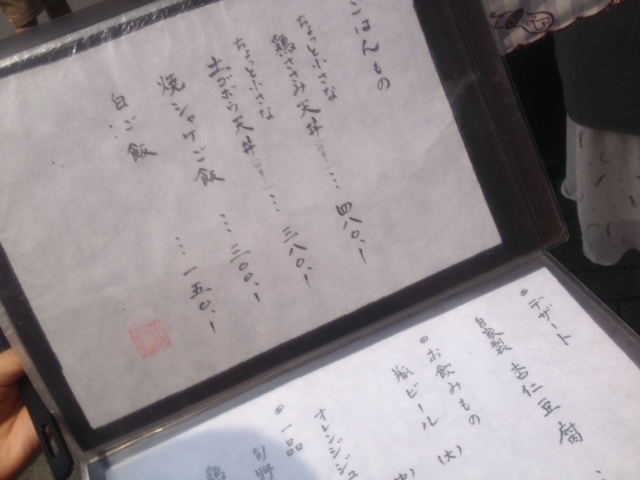 ごはんもの
ちょっと小さな
鶏ささみ天丼 … 四八〇.ー
ちょっと小さな
土ゴボウ天丼 … 三八〇.ー
焼シャケご飯 … 三〇〇.ー
白ご飯 … 一五〇.ー
デザート
自家製 杏仁豆腐
お飲みもの
瓶ビール (大)
オレンジジュ
一品
旬野
鶏